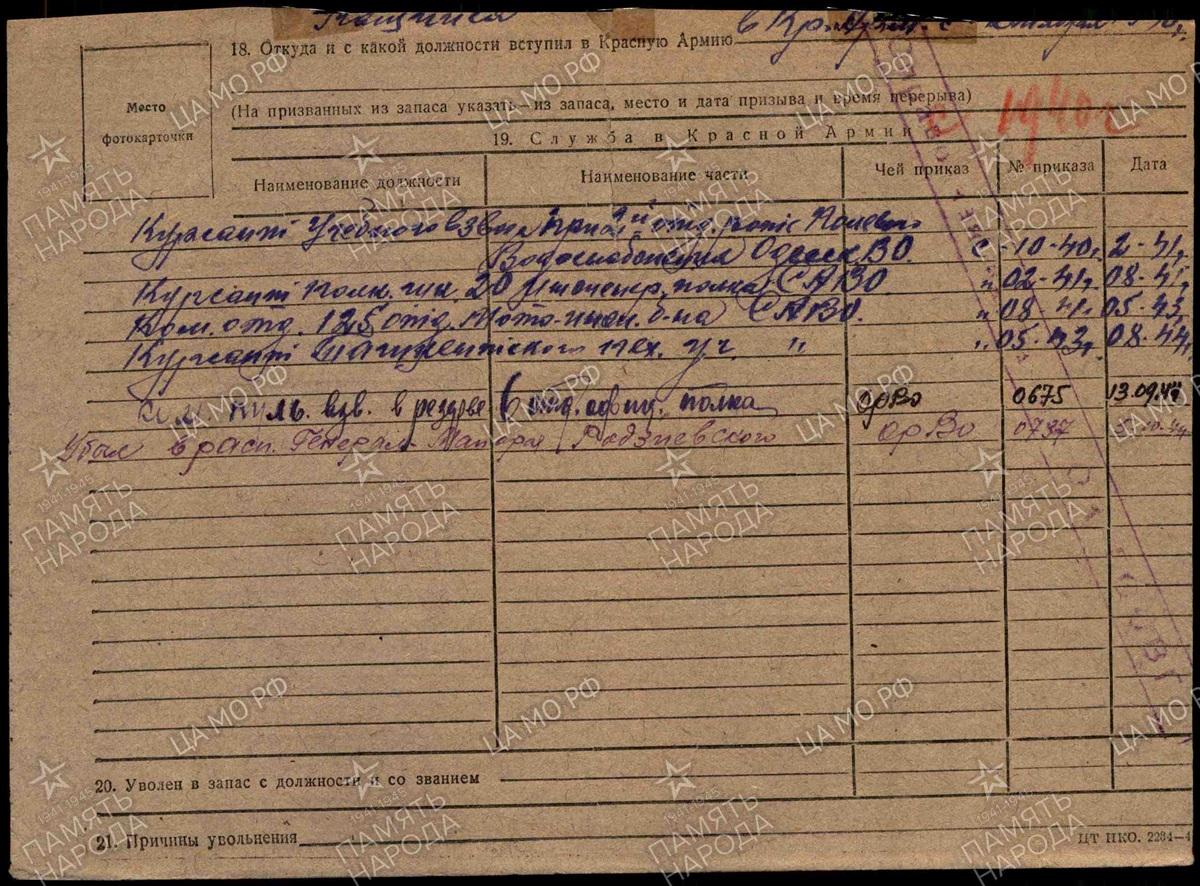 в Кр.
18. Откуда и с какой должности вступил в Красную Армию
(На призванных из запаса указать—из запаса, место и дата призыва и время перерыва)
с 1940 г
Место
фотокарточки
19. Служба в Красной Армии
Наименование должности Наименование части Чей приказ № приказа Дата
Курсант Учебного взвода при отд. роте Полевого
Водоснабжения Одесск ВО. с -10-40г. 2-41г.
Курсант полк. шк. 20 Инженер. полка САВО " 02-41г. 08-41г.
Ком. отд. 125 отд. Мото-инж. б-на САВО. " 08-41г. 05-43г.
Курсант Ташкентского пех. уч. " " 05-43г. 08-44г.
ком. пуль. взв. в резерве 6 отд. офиц. полка ОрВО 0675 13.09.44
Убыл в расп. Генерал-Майора Родзиевского ОрВО 0737 10.44
20. Уволен в запас с должности и со званием
21. Причины увольнения
ЦТ НКО. 2284—4
ЦА МО РФ
1941-1945
ПАМЯТЬ
НАРОДА